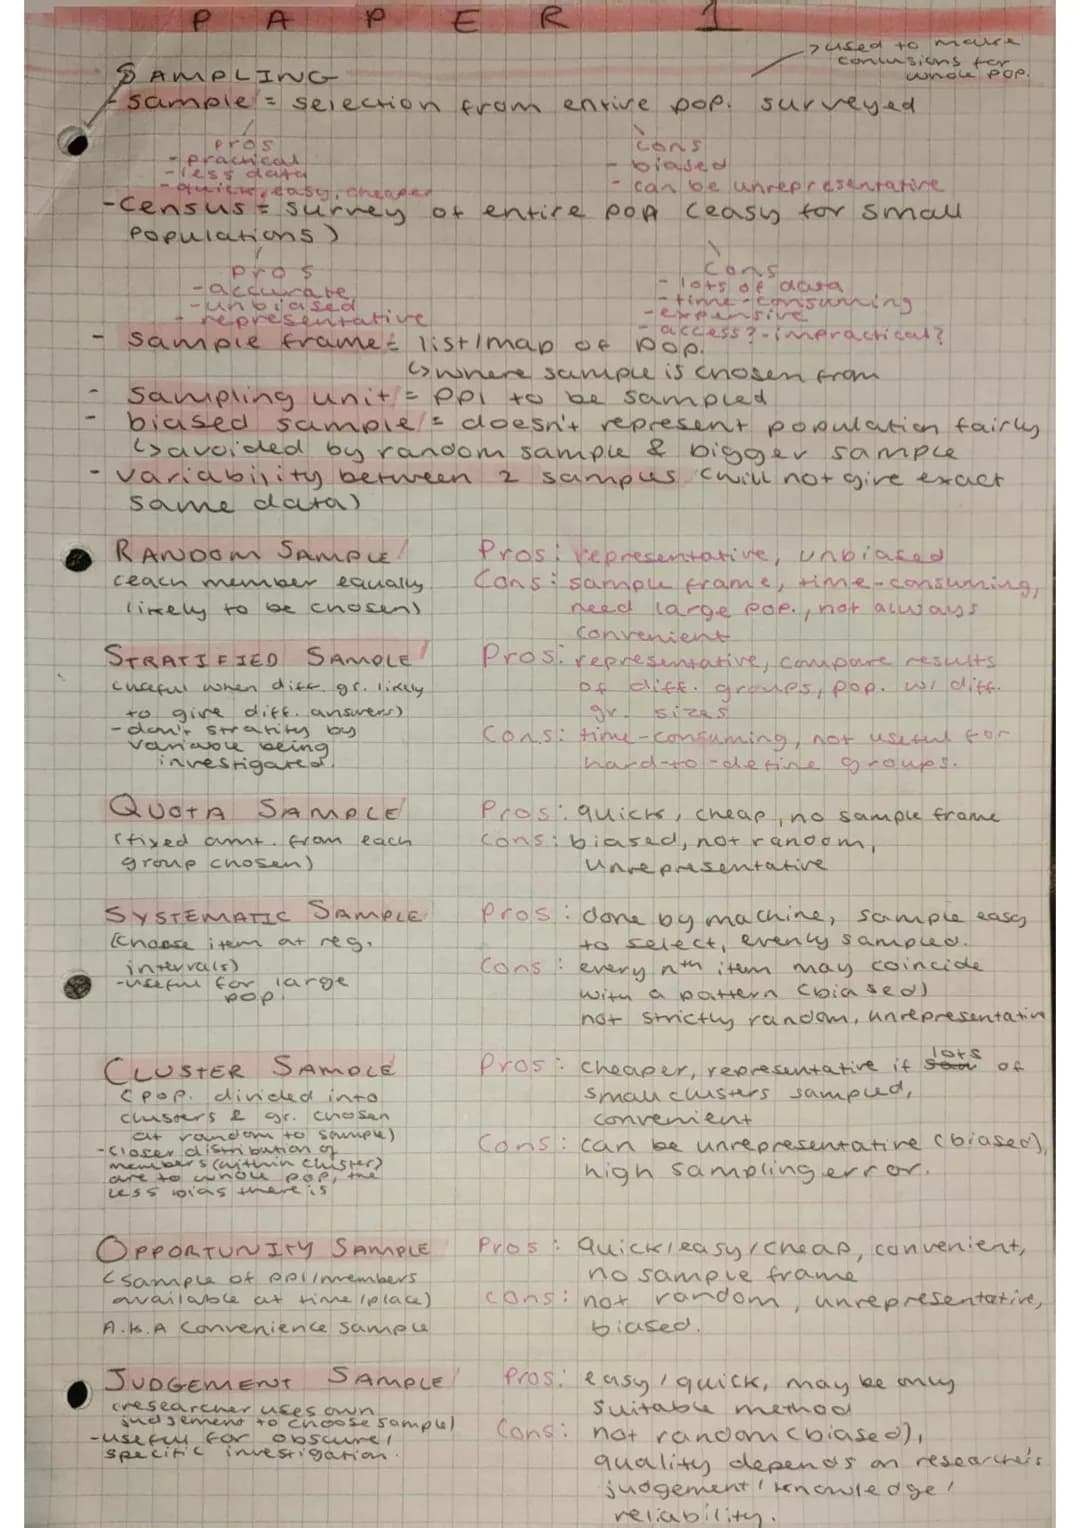 PAPER 1
→ used to make
conclusions for
whole pop.
SAMPLING
- sample = selection from entire pop. surveyed
pros
- practical
- less data
- quick, easy, cheaper
cons
- biased
- can be unrepresentative
- Census = survey of entire pop (easy for small
populations)
pros
- accurate
- unbiased
- representative
cons
- lots of data
- time-consuming
- expensive
- access? - impractical?
- sample frame = list/map of pop.
↳ where sample is chosen from
- Sampling unit = ppl to be sampled
- biased sample = doesn't represent population fairly
↳ avoided by random sample & bigger sample
- variability between 2 samples (will not give exact
same data)
RANDOM SAMPLE
(each member equally
likely to be chosen)
Pros: representative, unbiased
Cons: sample frame, time-consuming,
need large pop., not always
convenient
STRATIFIED SAMPLE
(useful when diff. gr. likely
to give diff. answers)
- don't stratify by
variable being
investigated.
Pros: representative, compare results
of diff. groups, pop. w/ diff.
gr. sizes
Cons: time-consuming, not useful for
hard-to-define groups.
QUOTA SAMPLE
(fixed amt. from each
group chosen)
Pros: quick, cheap, no sample frame
Cons: biased, not random,
unrepresentative
SYSTEMATIC SAMPLE
(Choose item at reg.
intervals)
- useful for large
pop.
Pros: done by machine, sample easy
to select, evenly sampled.
Cons: every nth item may coincide
with a pattern (biased)
not strictly random, unrepresentativ
CLUSTER SAMPLE
(pop. divided into
clusters & gr. chosen
at random to sample)
- closer distribution of
members (within cluster)
are to whole pop, the
less bias there is
Pros: cheaper, representative if lots of
small clusters sampled,
convenient
Cons: can be unrepresentative (biased),
high sampling error.
OPPORTUNITY SAMPLE
(sample of ppl/members
available at time/place)
A.K.A Convenience sample
Pros: Quick/easy/cheap, convenient,
no sample frame
cons: not random, unrepresentative,
biased.
JUDGEMENT SAMPLE
(researcher uses own
judgement to choose sample)
- useful for obscure/
specific investigation.
Pros: easy/quick, may be only
suitable method
Cons: not random (biased),
quality depends on researcher's
judgement/knowledge/
reliability.